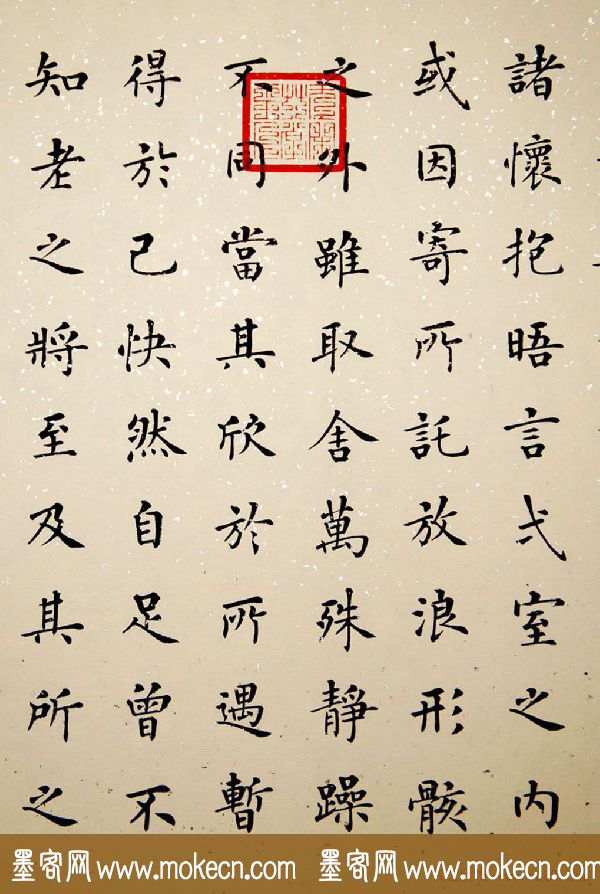 諸懷抱晤言弌室之內
或因寄所託放浪形骸
之外雖取舍萬殊靜躁
不同當其欣於所遇暫
得於己快然自足曾不
知老之將至及其所之
墨客网 www.mokecn.com 墨客网 www.mokecn.com